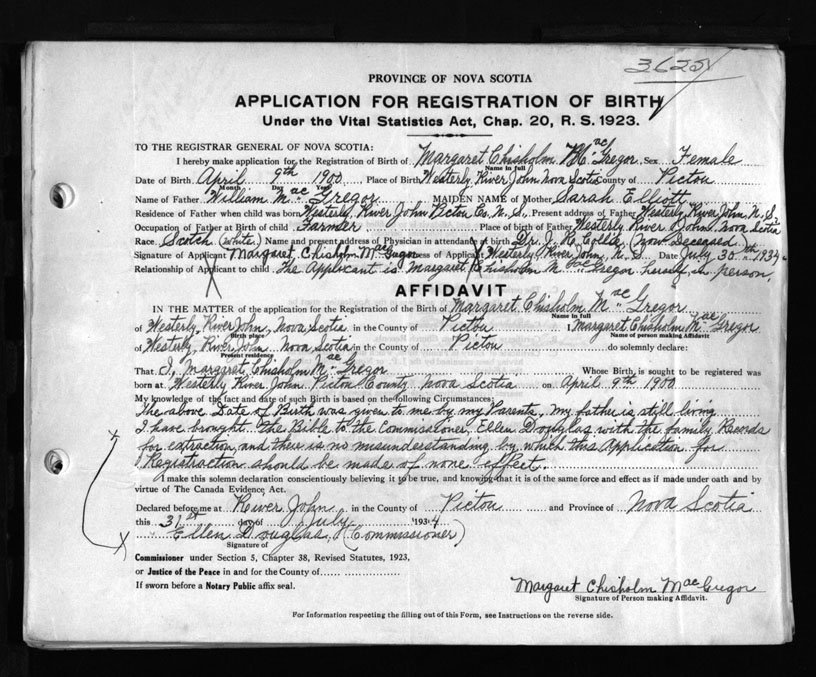 36251
PROVINCE OF NOVA SCOTIA
APPLICATION FOR REGISTRATION OF BIRTH
Under the Vital Statistics Act, Chap. 20, R. S. 1923.
TO THE REGISTRAR GENERAL OF NOVA SCOTIA:
I hereby make application for the Registration of Birth of Margaret Chisholm MacGregor Sex Female
Name in full
Date of Birth April 9th 1900 Place of Birth Westerly River John Nova Scotia County of Pictou
Month Day Year
Name of Father William MacGregor MAIDEN NAME of Mother Sarah Elliott
Residence of Father when child was born Westerly River John Pictou Co. N. S., Present address of Father Westerly River John N. S.
Occupation of Father at Birth of child Farmer Place of birth of Father Westerly River John, Nova Scotia
Race Scotch (White) Name and present address of Physician in attendance at birth Dr. J. K. Collie, Now Deceased
Signature of Applicant Margaret Chisholm MacGregor Address of Applicant Westerly River John, N. S. Date July 30th 1934
Relationship of Applicant to child The Applicant is Margaret Chisholm MacGregor herself in person.
AFFIDAVIT
IN THE MATTER of the application for the Registration of the Birth of Margaret Chisholm MacGregor
Name in full
of Westerly River John, Nova Scotia in the County of Pictou I, Margaret Chisholm MacGregor
Birth place Name of Person making Affidavit
of Westerly River John Nova Scotia in the County of Pictou do solemnly declare:
Present residence
That I, Margaret Chisholm MacGregor Whose Birth is sought to be registered was
born at Westerly River John Pictou County Nova Scotia on April 9th 1900
My knowledge of the fact and date of such Birth is based on the following Circumstances:
The above Date of Birth was given to me by my Parents, my father is still living
I have brought the Bible to the Commissioner, Ellen Douglas with the family Records
for extraction, and there is no misunderstanding by which this Application for
Registraction should be made of none effect.
I make this solemn declaration conscientiously believing it to be true, and knowing that it is of the same force and effect as if made under oath and by
virtue of The Canada Evidence Act.
Declared before me at River John in the County of Pictou and Province of Nova Scotia
this 31st day of July 1934
Ellen Douglas (Commissioner)
Signature of
Commissioner under Section 5, Chapter 38, Revised Statutes, 1923,
or Justice of the Peace in and for the County of
If sworn before a Notary Public affix seal.
Margaret Chisholm MacGregor
Signature of Person making Affidavit.
For Information respecting the filling out of this Form, see Instructions on the reverse side.